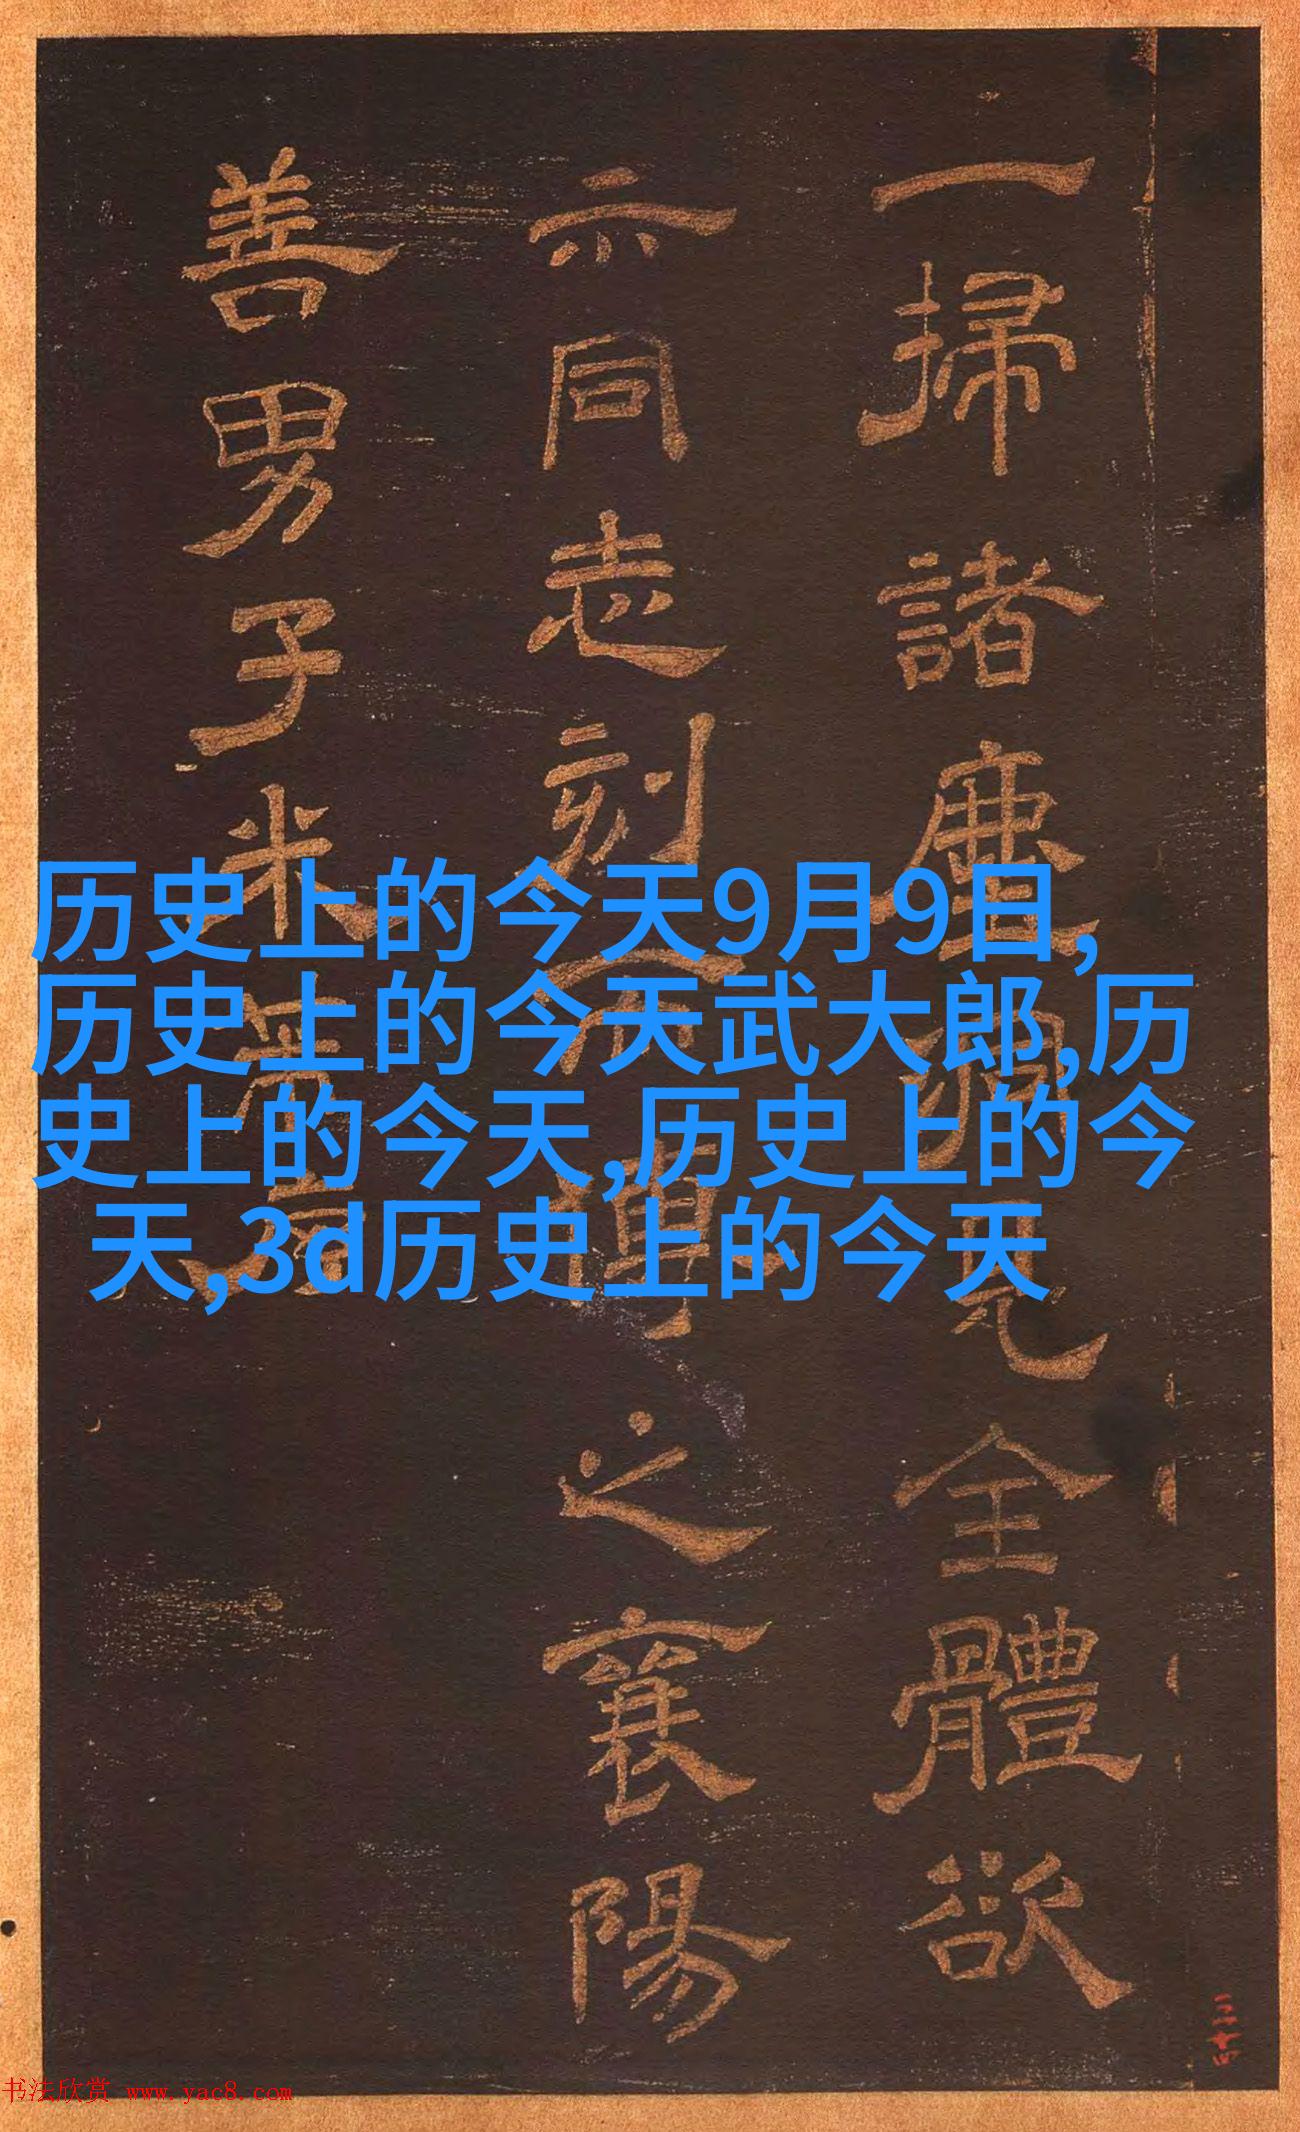 一掃諸塵獨見全體欲
示同志刻而傳之襄陽
善男子米
历史上的今天9月9日,
历史上的今天武大郎,历
史上的今天,历史上的今
天,3d历史上的今天
三十四
书法欣赏 www.yac8.com